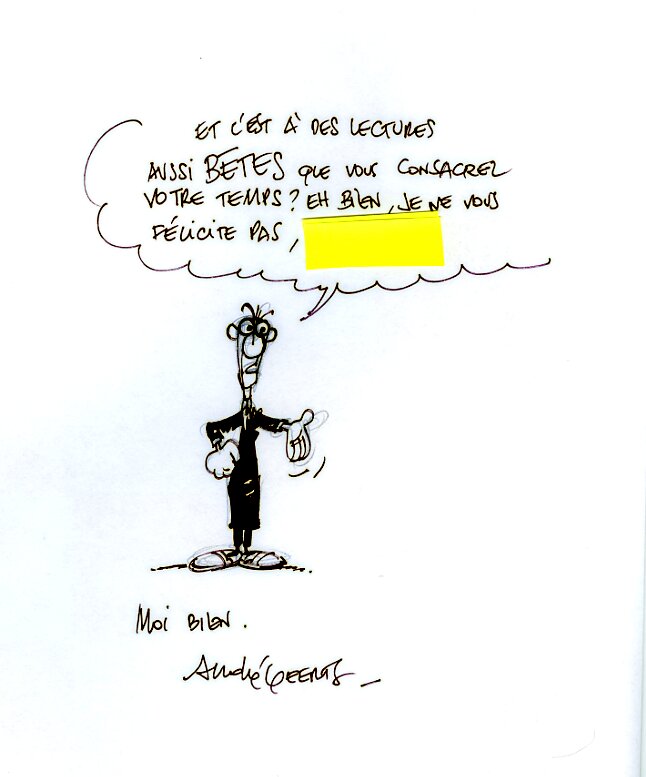 ET C'EST À DES LECTURES
AUSSI BÊTES QUE VOUS CONSACREZ
VOTRE TEMPS? EH BIEN, JE NE VOUS
FÉLICITE PAS,
MOI BIEN.
André Geerts